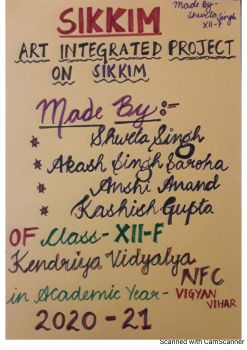 SIKKIM
Made By-
Shweta Singh
XII-F
ART INTEGRATED PROJECT
ON SIKKIM
Made By:-
* Shweta Singh
* Akash Singh Saroha
* Anshi Anand
* Kashish Gupta
OF Class- XII-F
Kendriya Vidyalya
NFC
in Academic Year- VIGYAN
VIHAR
2020-21
Scanned with CamScanner